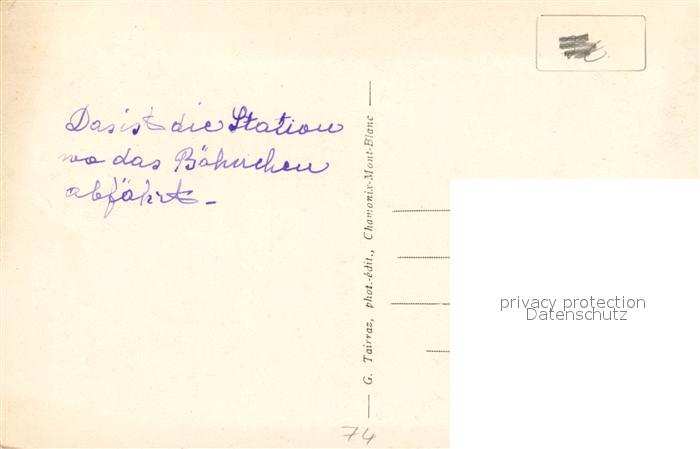 Das ist die Station
wo das Bähnchen
abfährt -
G. Tairraz, phot.-édit., Chamonix-Mont-Blanc
privacy protection
Datenschutz
74